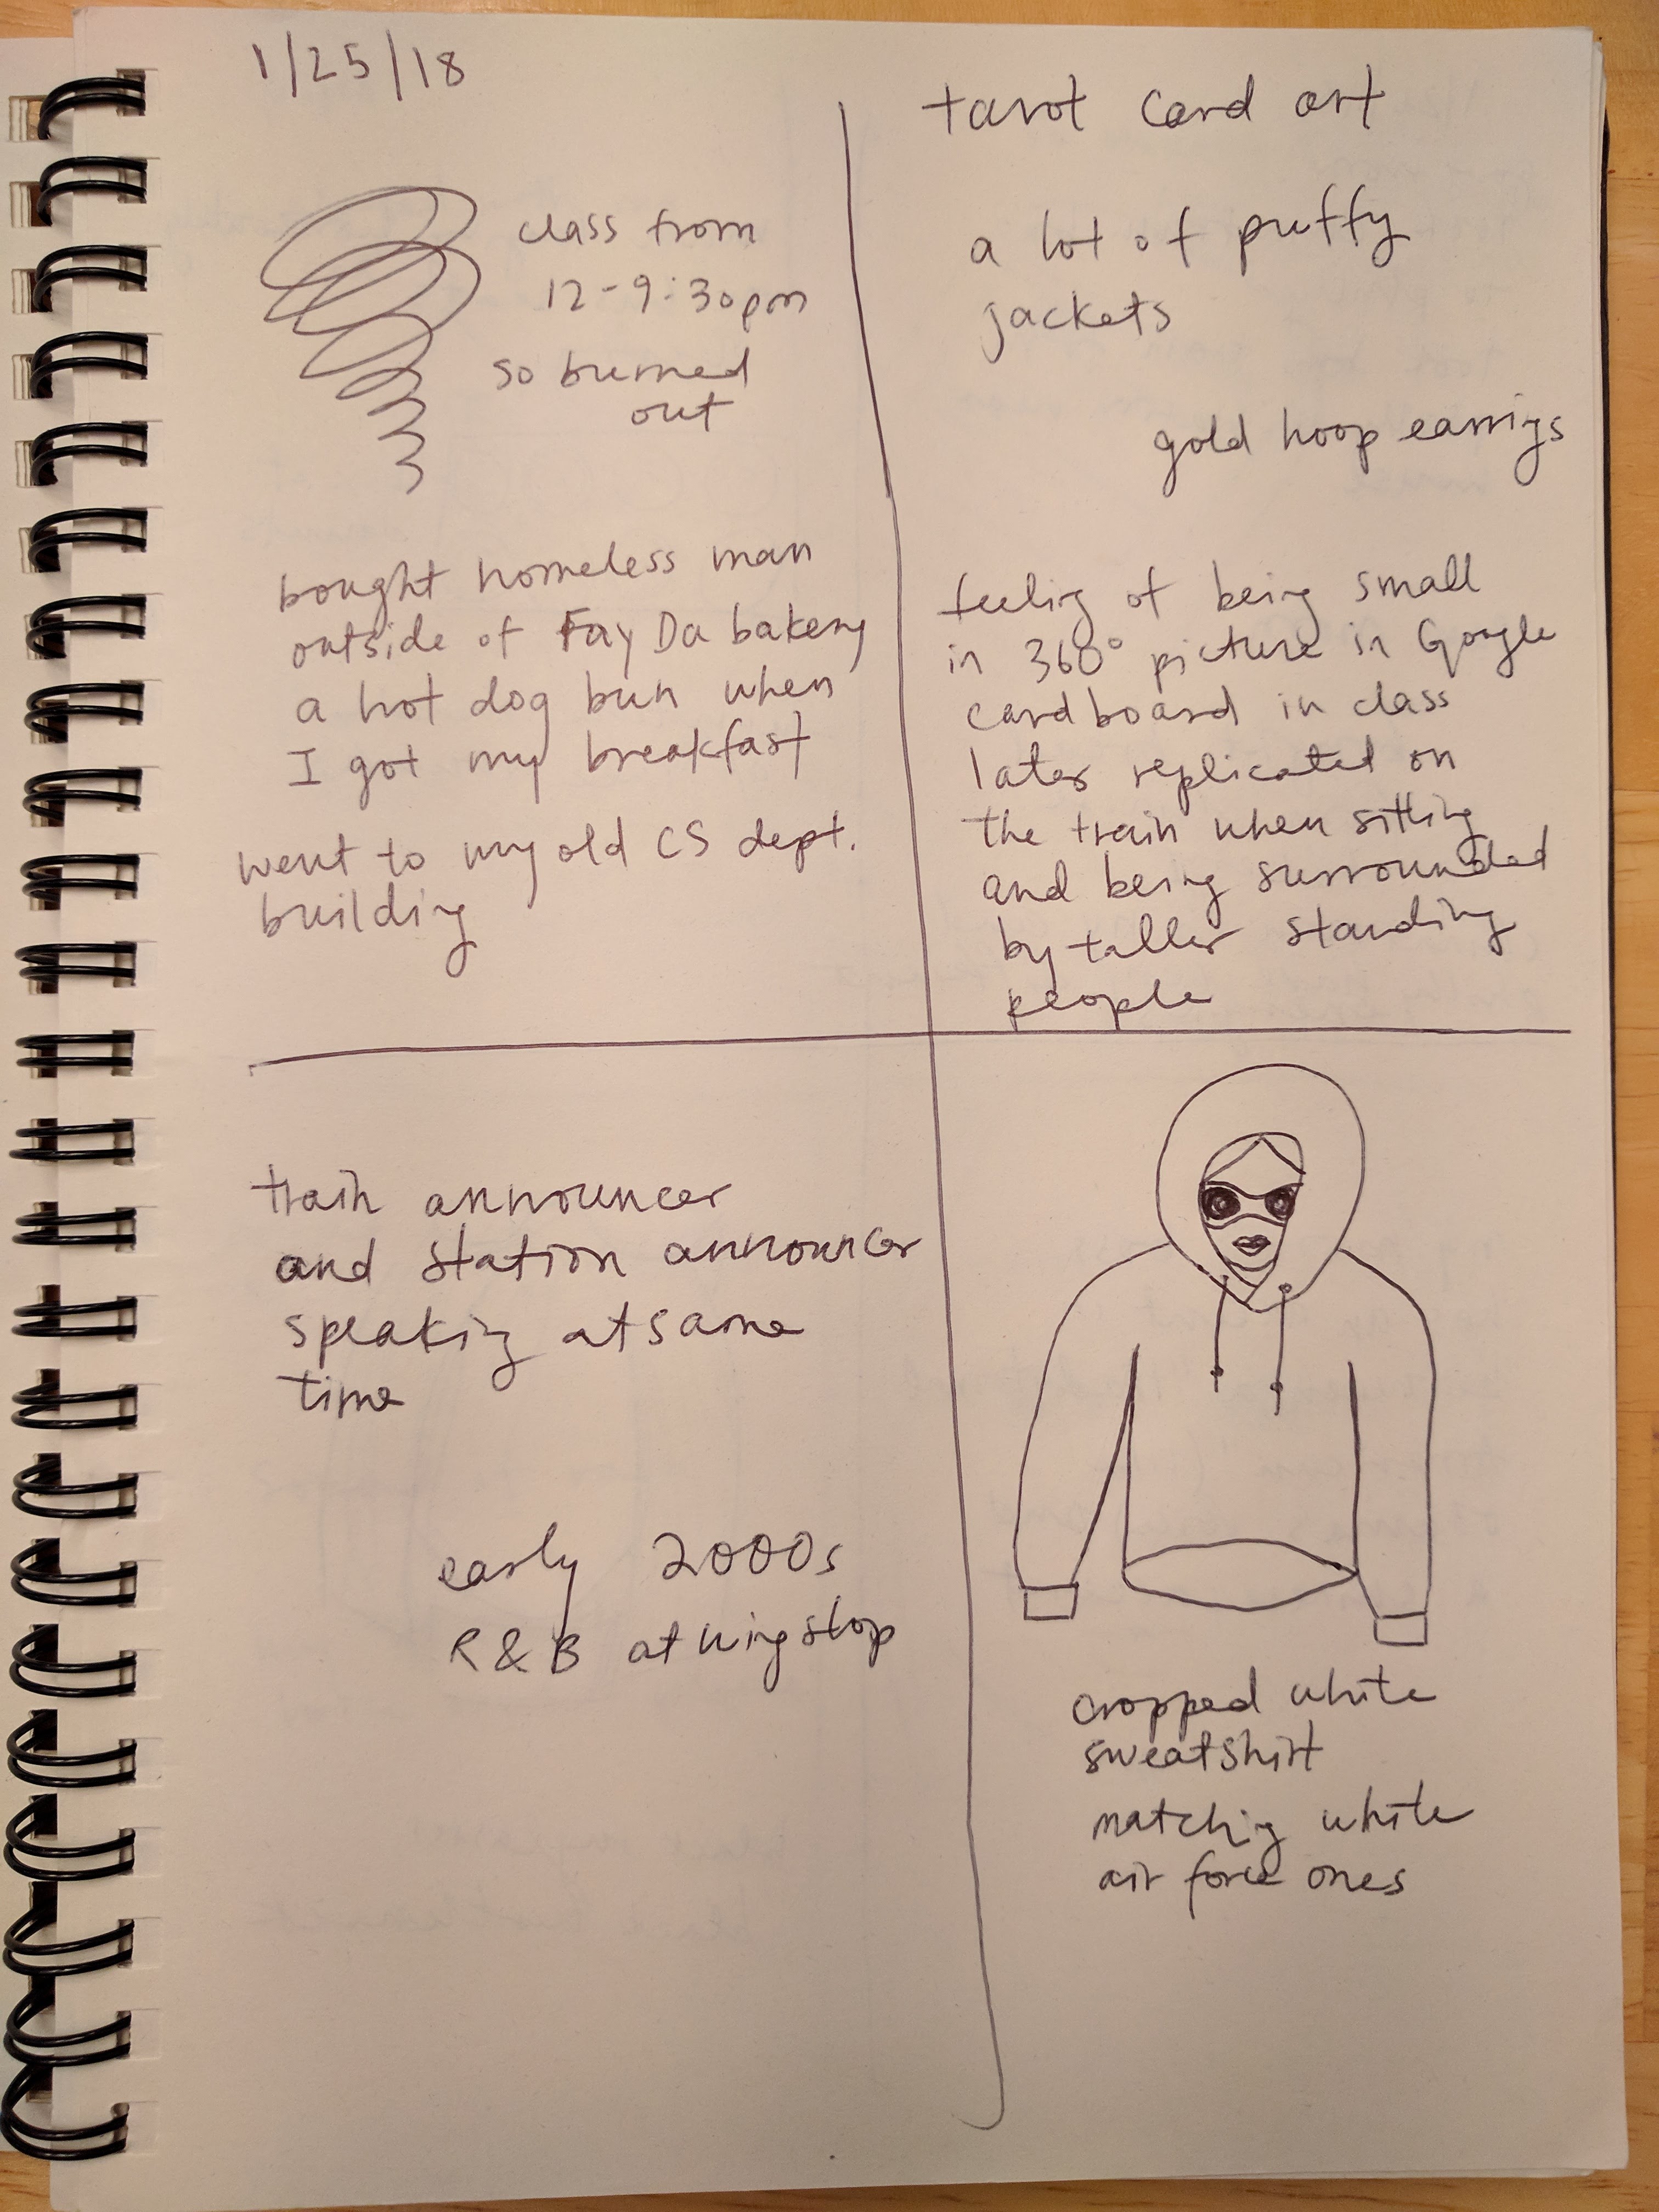 1/25/18
class from
12-9:30pm
so burned
out
bought homeless man
outside of Fay Da bakery
a hot dog bun when
I got my breakfast
went to my old CS dept.
building
tarot card art
a lot of puffy
jackets
gold hoop earrings
feeling of being small
in 360° picture in Google
cardboard in class
later replicated on
the train when sitting
and being surrounded
by taller standing
people
train announcer
and station announcer
speaking at same
time
early 2000s
R&B at wingstop
cropped white
sweatshirt
matching white
air force ones